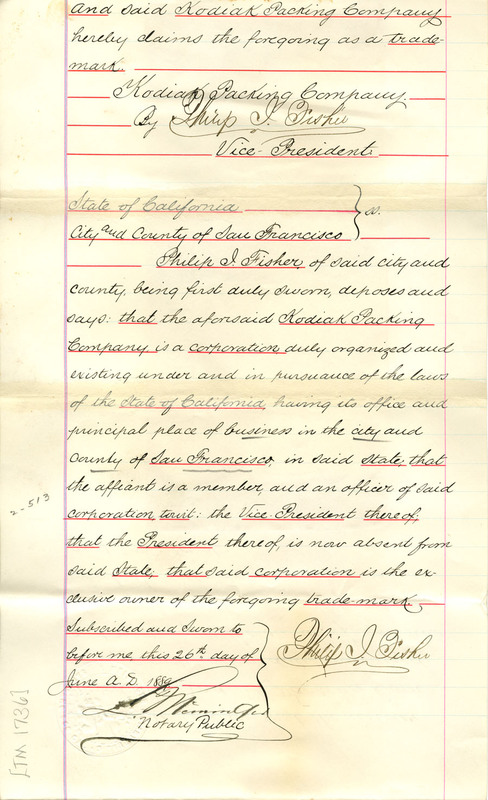 and said Kodiak Packing Company
hereby claims the foregoing as a trade-
mark.
Kodiak Packing Company
By Philip I. Fisher
Vice-President
State of California
City and County of San Francisco } ss.
Philip I. Fisher, of said city and
county, being first duly sworn, deposes and
says: that the aforsaid Kodiak Packing
Company is a corporation duly organized and
existing under and in pursuance of the laws
of the State of California, having its office and
principal place of business in the city and
County of San Francisco, in said State, that
the affiant is a member, and an officer of said
corporation, towit: the Vice-President thereof,
that the President thereof, is now absent from
said State, that said corporation is the ex-
clusive owner of the foregoing trade-mark.
Subscribed and Sworn to
before me, this 26th day of
June A.D. 1889
Philip I. Fisher
Notary Public
2-513
[TM 1736]